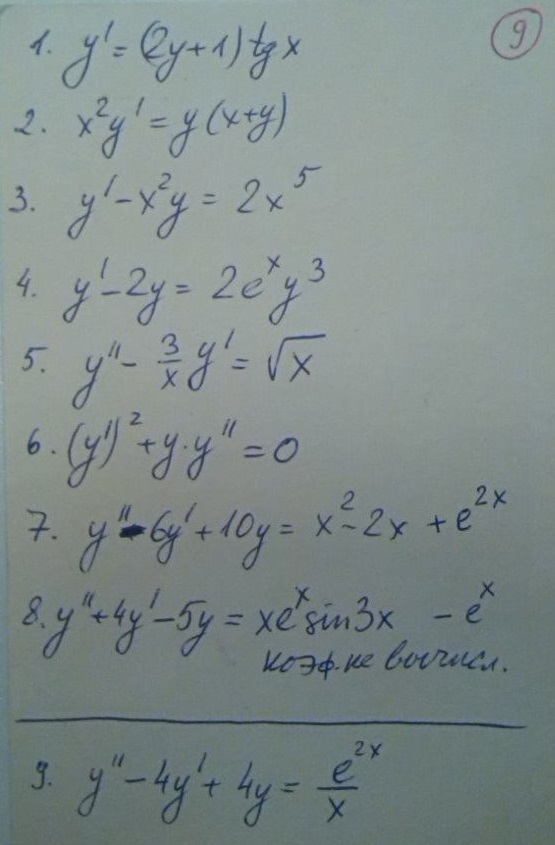 9
1. y' = (2y+1) tg x
2. x²y' = y(x+y)
3. y' - x²y = 2x⁵
4. y' - 2y = 2eˣy³
5. y'' - 3/x y' = √x
6. (y')² + y·y'' = 0
7. y'' - 6y' + 10y = x² - 2x + e²ˣ
8. y'' + 4y' - 5y = xeˣ sin3x - eˣ
коэф. не вычисл.
9. y'' - 4y' + 4y = e²ˣ/x